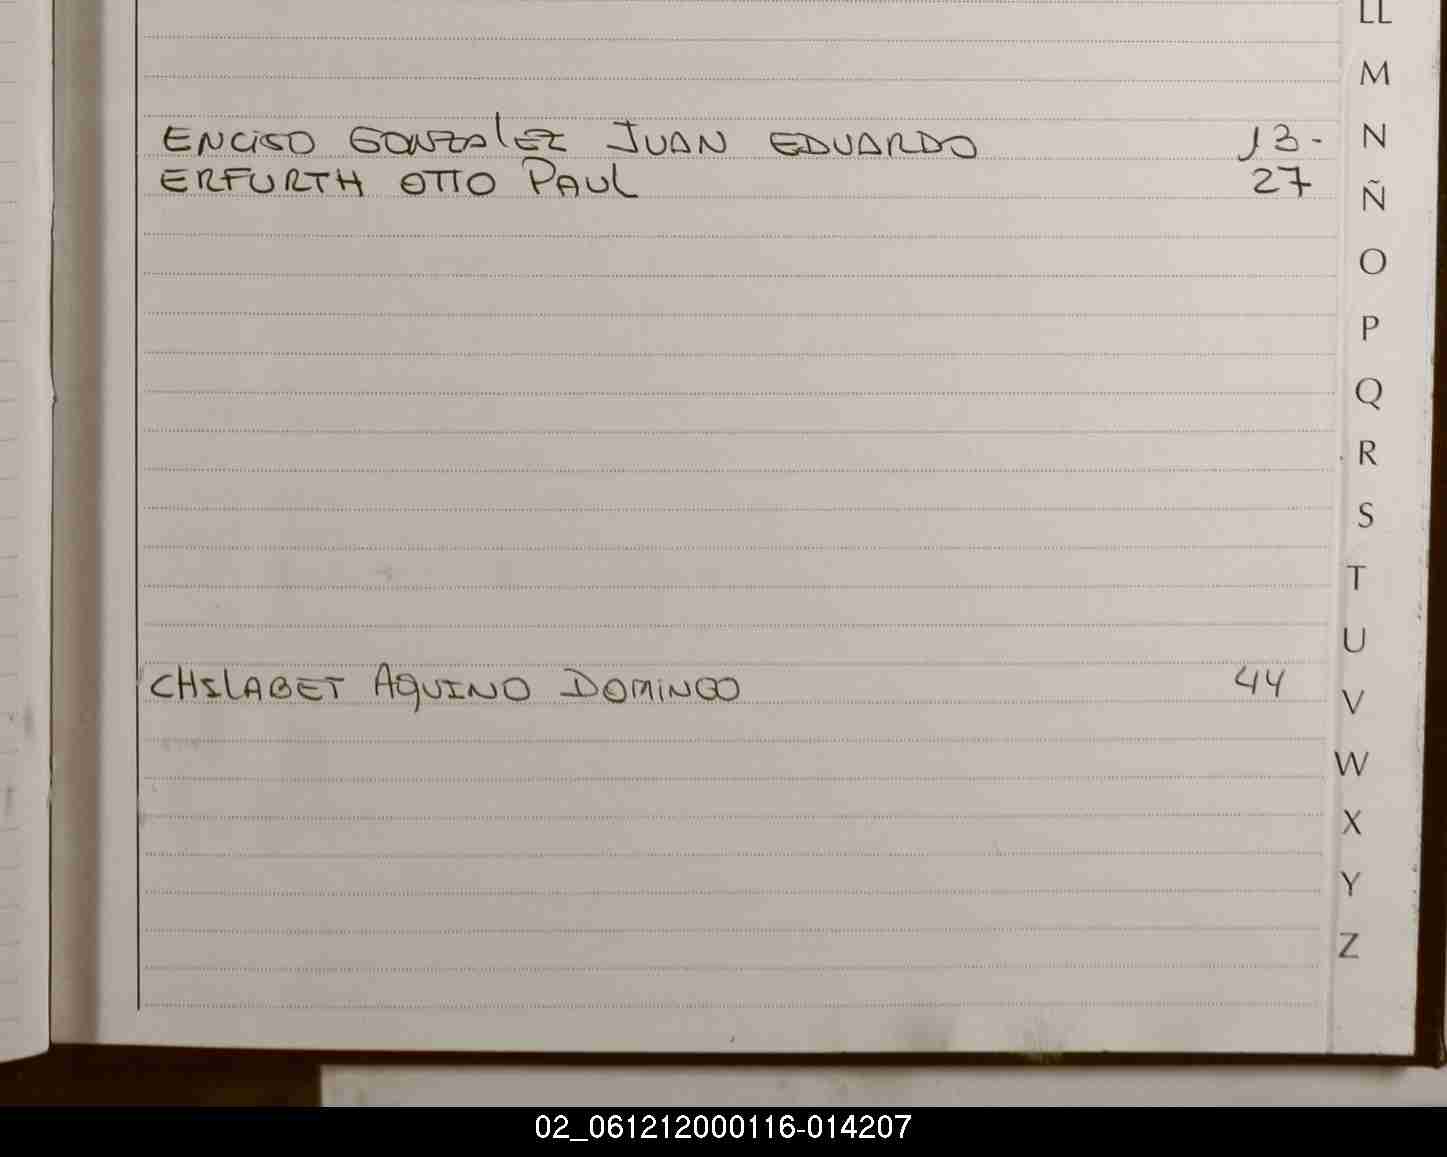 LL
M
ENCISO GONZALEZ JUAN EDUARDO 13- N
ERFURTH OTTO PAUL 27
Ñ
O
P
Q
R
S
T
U
CHILABET AQUINO DOMINGO 44
V
W
X
Y
Z
02_061212000116-014207